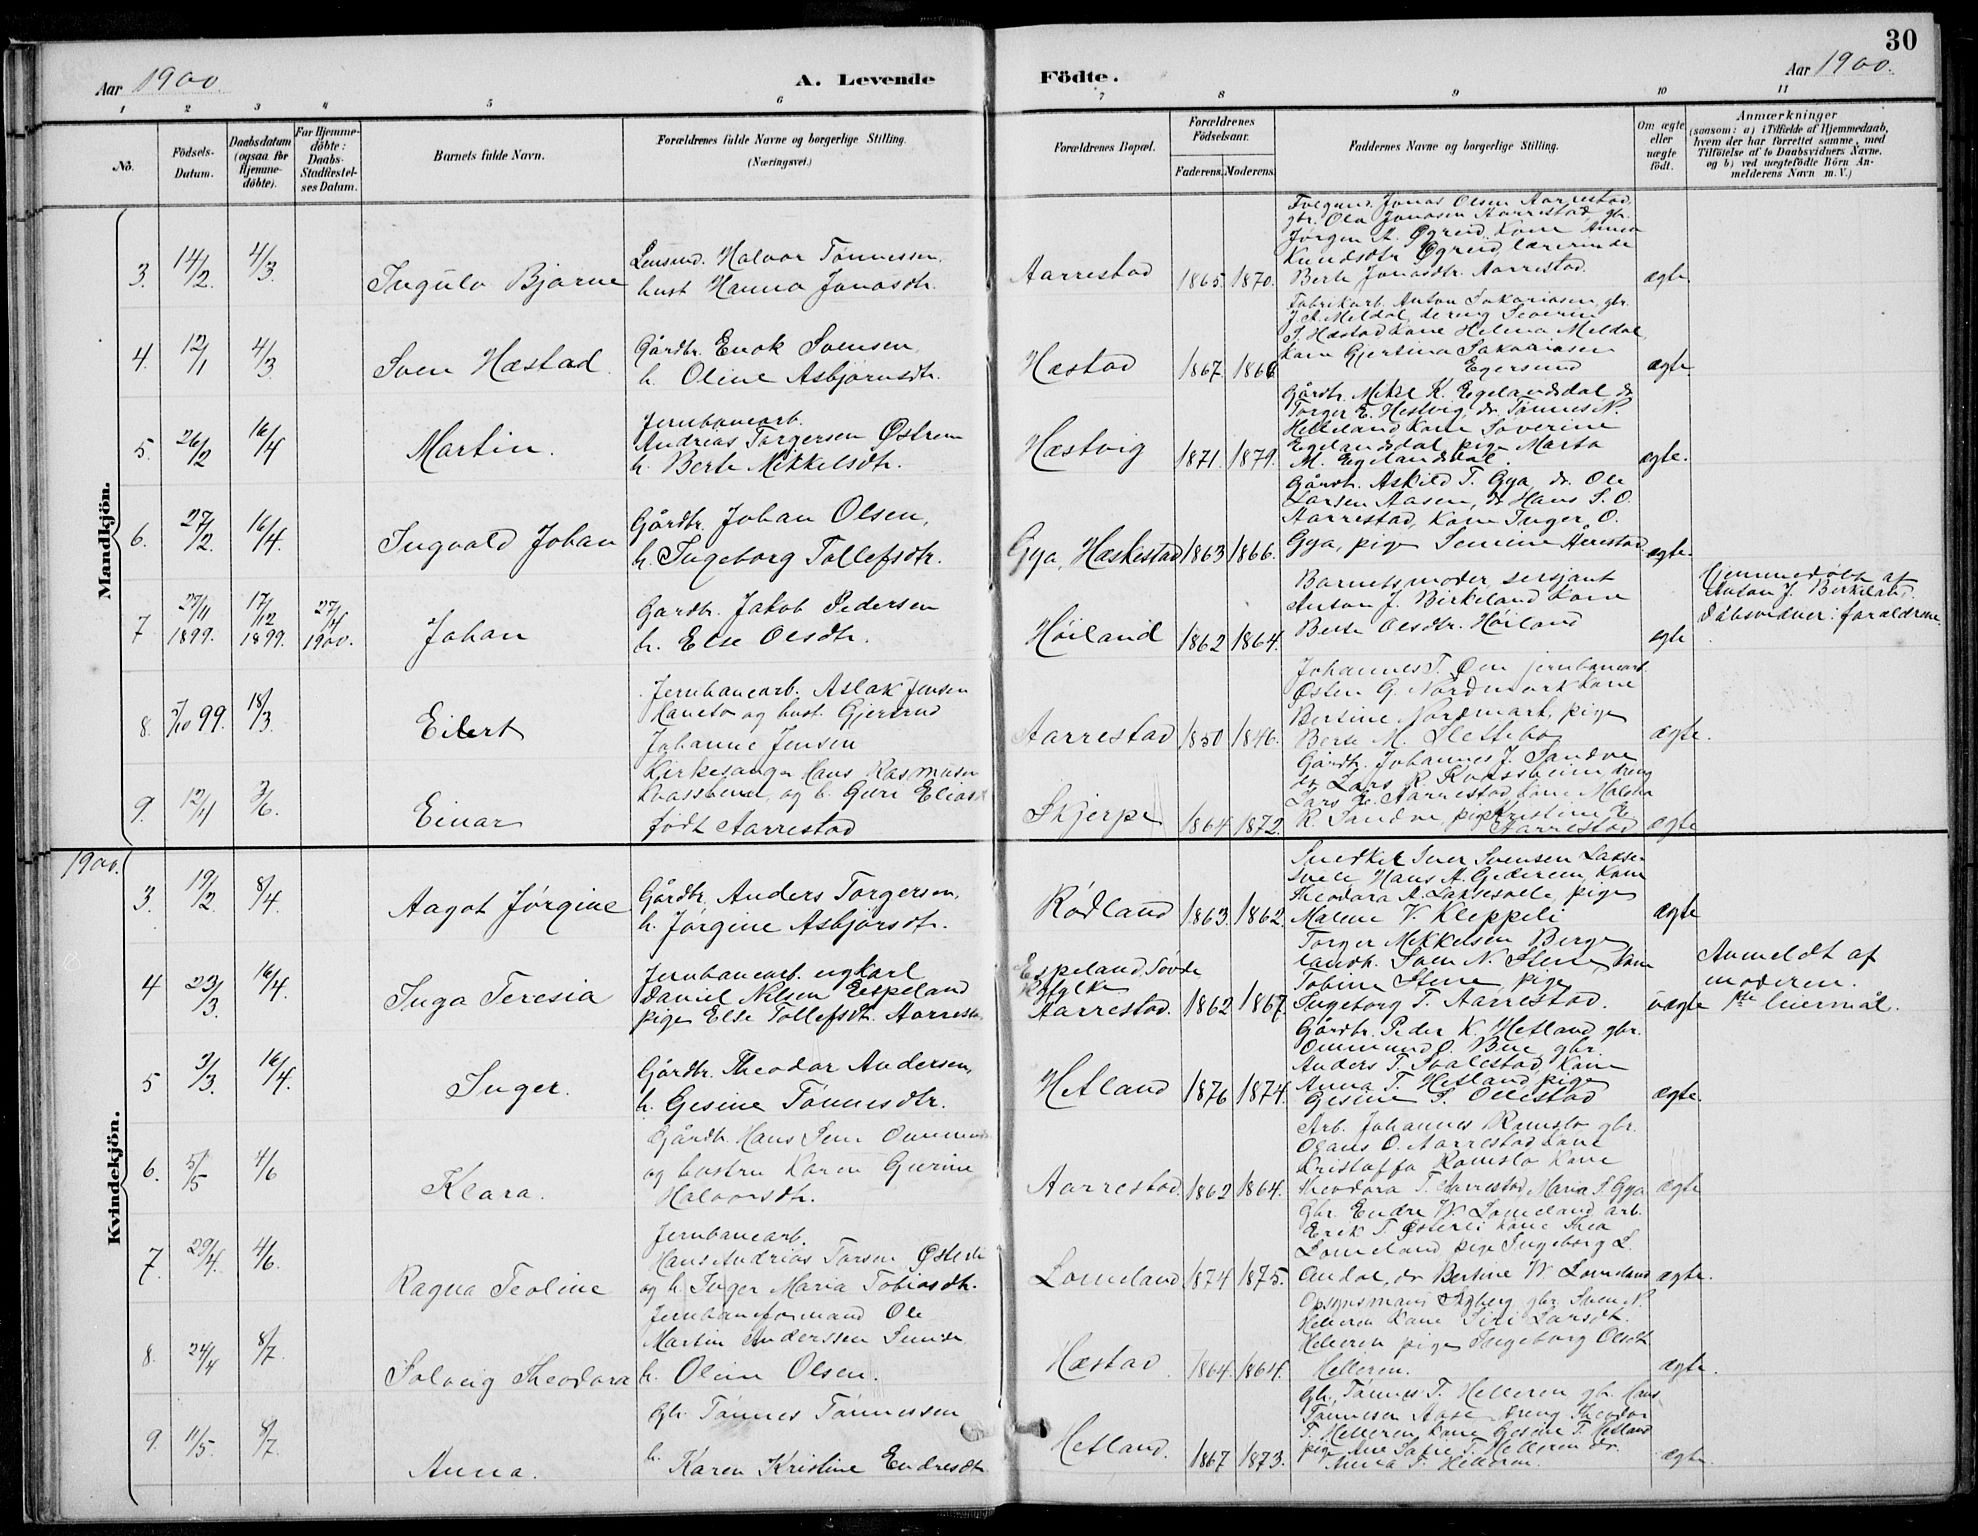 30
Aar 1900.
A. Levende
Födte.
Aar 1900.
1 2 3 4 5 6 7 8 9 10 11
No.
Födsels-Datum.
Daabsdatum (ogsaa for Hjemme-döbte).
For Hjemme-döbte: Daabs-Stadfæstel-ses Datum.
Barnets fulde Navn.
Forældrenes fulde Navne og borgerlige Stilling.
(Næringsvei.)
Forældrenes Bopæl.
Forældrenes Födselsaar.
Faderens. Moderens.
Faddernes Navne og borgerlige Stilling.
Om ægte eller uægte födt.
Anmærkninger
(saasom: a) i Tilfælde af Hjemmedaab,
hvem der har forrettet samme, med
Tilföielse af to Daabsvidners Navne,
og b) ved uægtefödte Börn An-
melderens Navn m. V.)
Mandkjön.
3. 14/2. 4/3. Ingulv Bjarne
Lensmd. Halvor Tønnessen,
hust Hanna Jonasdtr.
Aarrestad 1865. 1870.
Jonas Olsen Aarrestad
gbr. Ola Jonasen Aarrestad, gbr.
Jørgen A. Øgreid, kone Anna
Knudsdtr Øgreid, lærerinde
Berte Jonasdtr. Aarrestad.
ægte
4. 12/1 4/3. Sven Hæstad.
Gårdbr. Enok Svensen,
h. Oline Asbjørnsdtr.
Hæstad 1867. 1866
Fabrikarb. Anton Sakariasen, gbr.
J. A. Meldal, dreng Severin
S. Hæstad kone Helena Meldal
kone Gjertina Sakariasen
Egersund
ægte.
5. 26/2 16/4 Martin.
Jernbanearb.
Andreas Torgersen Østrem
h. Berte Mikkelsdtr.
Hæstvig 1871. 1879.
Gårdbr. Mikal K. Egelandsdal do
Torger E. Hestvig, do. Tønnes N.
Helleland kone Saverine
Egelandsdal pige Marta
M. Egelandsdal.
ægte.
6. 27/2. 16/4. Ingvald Johan
Gårdbr. Johan Olsen,
h. Ingeborg Tollefsdtr.
Gya, Hæskestad 1863 1866.
Gårdbr. Askild T. Gya, do. Ole
Larsen Aasen, do Hans S. O.
Aarrestad, kone Inger O.
Gya, pige Semine Aarestad
ægte.
7 27/11 1899. 17/12 1899. 27/4 1900. Johan
Gardbr. Jakob Pedersen
h. Else Olsdtr.
Høiland 1862 1864.
Barnets moder, sersjant
Anton J. Birkeland kone
Berte Olsdtr. Høiland
ægte
Hjemmedøbt af
Anton J. Birkeland.
Dåbsvidner: forældrene.
8. 5/10 99. 18/3. Eilert
Jernbanearb. Aslak Jensen
og hust. Gjertrud
Johanne Jensen
Aarrestad 1850 1846.
Johannes T. jernbanearb
Østen G. Nordmark kone
Bertine Nordmark, pige
Berte M. Slettebø
ægte.
9. 12/4 3/6. Einar
Kirkesanger Hans Rasmusen
Kvassheim, og h. Guri Eliasd
født Aarrestad
Skjerpe 1864 1872.
Gårdbr. Johannes J. Sandve
do Lars R. Kvassheim dreng
Lars E. Aarrestad kone Malena
R. Sandve, pige Kristine E
Aarrestad
ægte
1900.
Kvindekjön.
3. 19/2. 8/4. Aagot Jørgine
Gårdbr. Anders Torgersen,
h. Jørgine Asbjørsdtr.
Rødland 1863. 1862.
Snedker Iver Svensen Lakse-
svele Hans A. Gederem, kone
Theodora A. Laksesvele, pige
Malene V. Kleppeli
ægte
4 23/3. 16/4. Inga Teresia
Jernbanearb. ugkarl
Daniel Nilsen Eespeland
pige Else Tollefsdtr. Aarrestad
Espeland, Søvde
Aarrestad. 1862 1867.
Torger Mikkelsen Berge
landh. Sven N. Stene, kone
Tobine Stene, pige
Ingeborg T. Aarrestad.
uægte
Anmeldt af
moderen.
1ste leiermål.
5 3/3. 16/4. Inger.
Gårdbr. Theodor Andersen,
h. Gesine Tønnesdtr.
Hetland 1876 1874.
Gårdbr. Peder K. Hetland gbr.
Ommund O. Bue gbr.
Anders T. Svalestad, kone
Anna T. Hetland, pige
Gesine S. Ollestad
ægte.
6. 5/5 4/6 Klara.
Gårdbr. Hans Sem Ommund
og hustru Karen Gurine
Halvorsdtr.
Aarrestad. 1862 1864.
Arb. Johannes Ramslo gbr.
Olaus O. Aarrestad kone
Kristoffa Ramslo kone
Theodora T. Aarrestad, Maria T. Gya
ægte
7. 29/4. 4/6. Ragna Teoline
Jernbanearb.
Hans Andrias Torsen Østerli
og h. Inger Maria Tobiasdtr.
Lomeland 1874 1875.
Gbr Endre W. Lomeland arb.
Erik T. Østerli kone Thea
Lomeland pige Ingeborg L.
do Bertine W. Lomeland
ægte.
8. 24/4 8/7. Solveig Theodora
Jernbaneformand Ole
Martin Anderssen Sunde
h. Oline Olsen.
Hæstad. 1864. 1864.
Opsynsmand gbr Sven N.
Helleren kone Siri Larsdt.
Helleren pige Ingeborg Olsdt
Helleren.
ægte.
9. 11/5. 8/7. Anna.
Gbr. Tønnes Tønnessen
h. Karen Kristine Endresdt.
Hetland. 1867 1873.
Gbr. Tønnes T. Helleren gbr. Hans
Tønnesen Aase dreng Theodor
T. Helleren kone Gesine T. Hetland
pige Ane Sofie T. Helleren do.
Anna T. Helleren.
ægte.